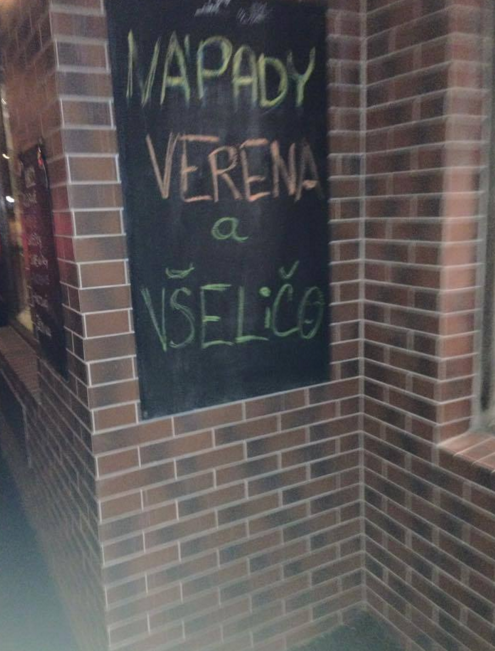 NÁPADY
VERENA
a
VŠELiČO